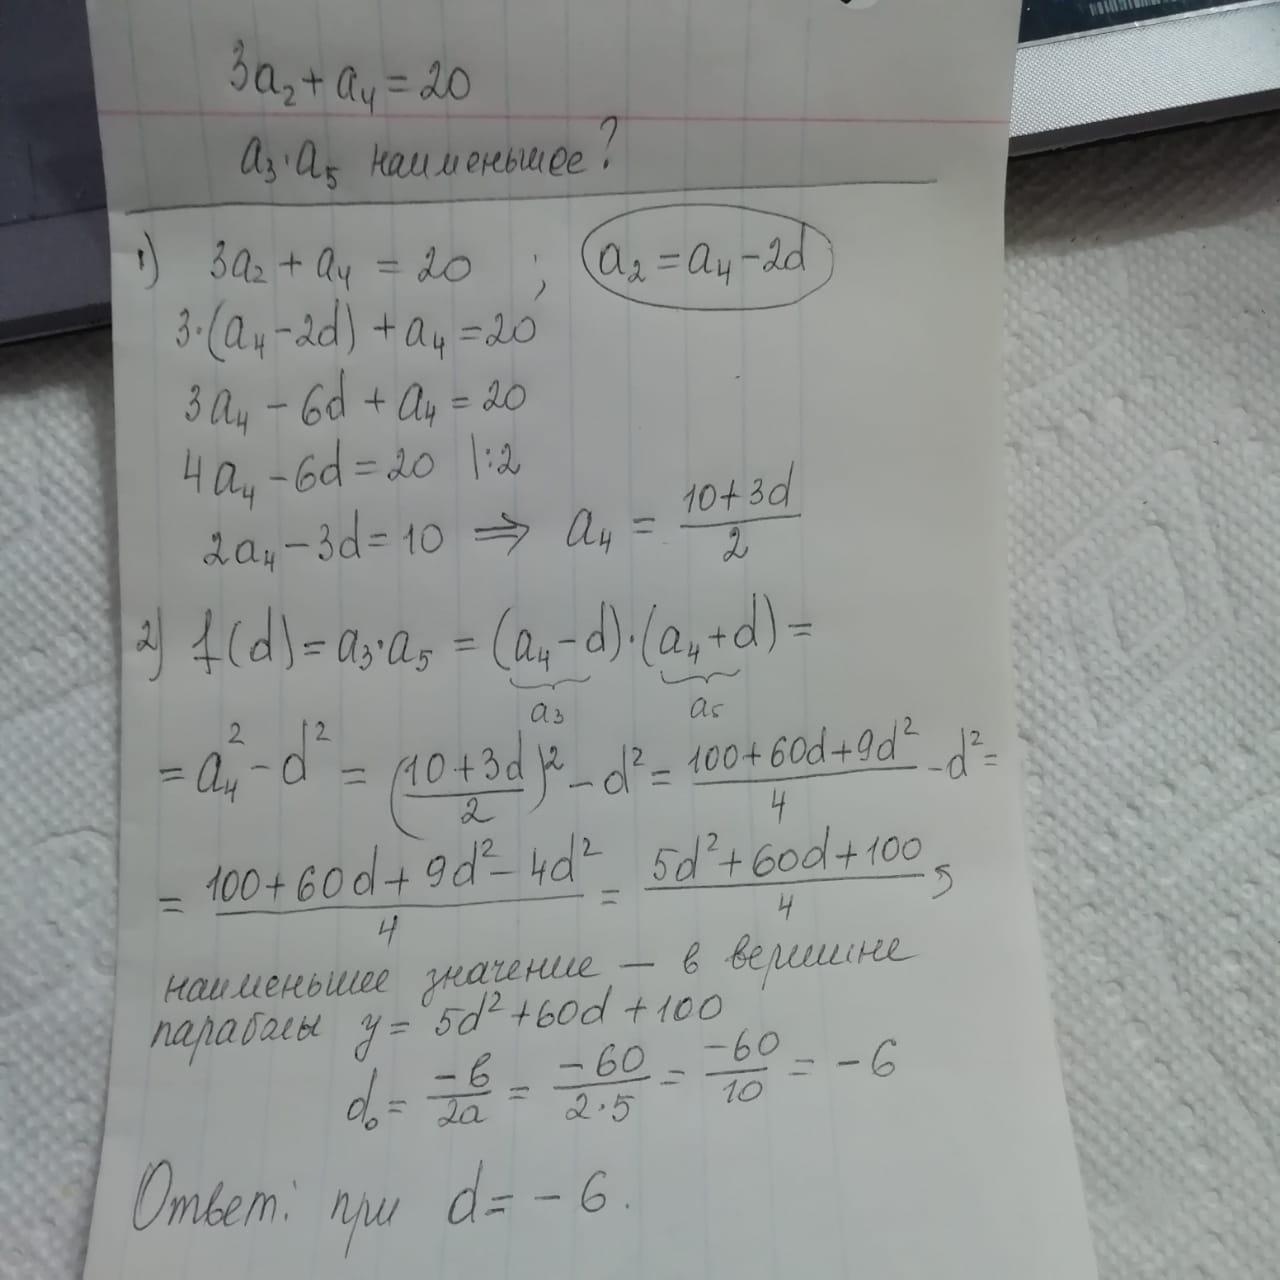 3a₂ + a₄ = 20
a₃·a₅ наименьшее?
1) 3a₂ + a₄ = 20 ; a₂ = a₄ - 2d
3·(a₄ - 2d) + a₄ = 20
3a₄ - 6d + a₄ = 20
4a₄ - 6d = 20 |:2
2a₄ - 3d = 10 ⇒ a₄ = (10+3d)/2
2) f(d) = a₃·a₅ = (a₄ - d)·(a₄ + d) =
a₃ a₅
= a₄² - d² = ((10+3d)/2)² - d² = (100+60d+9d²)/4 - d² =
= (100+60d+9d²-4d²)/4 = (5d²+60d+100)/4 ,
наименьшее значение — в вершине
параболы y = 5d² + 60d + 100
d₀ = -в/2a = -60/2·5 = -60/10 = -6
Ответ: при d = -6.